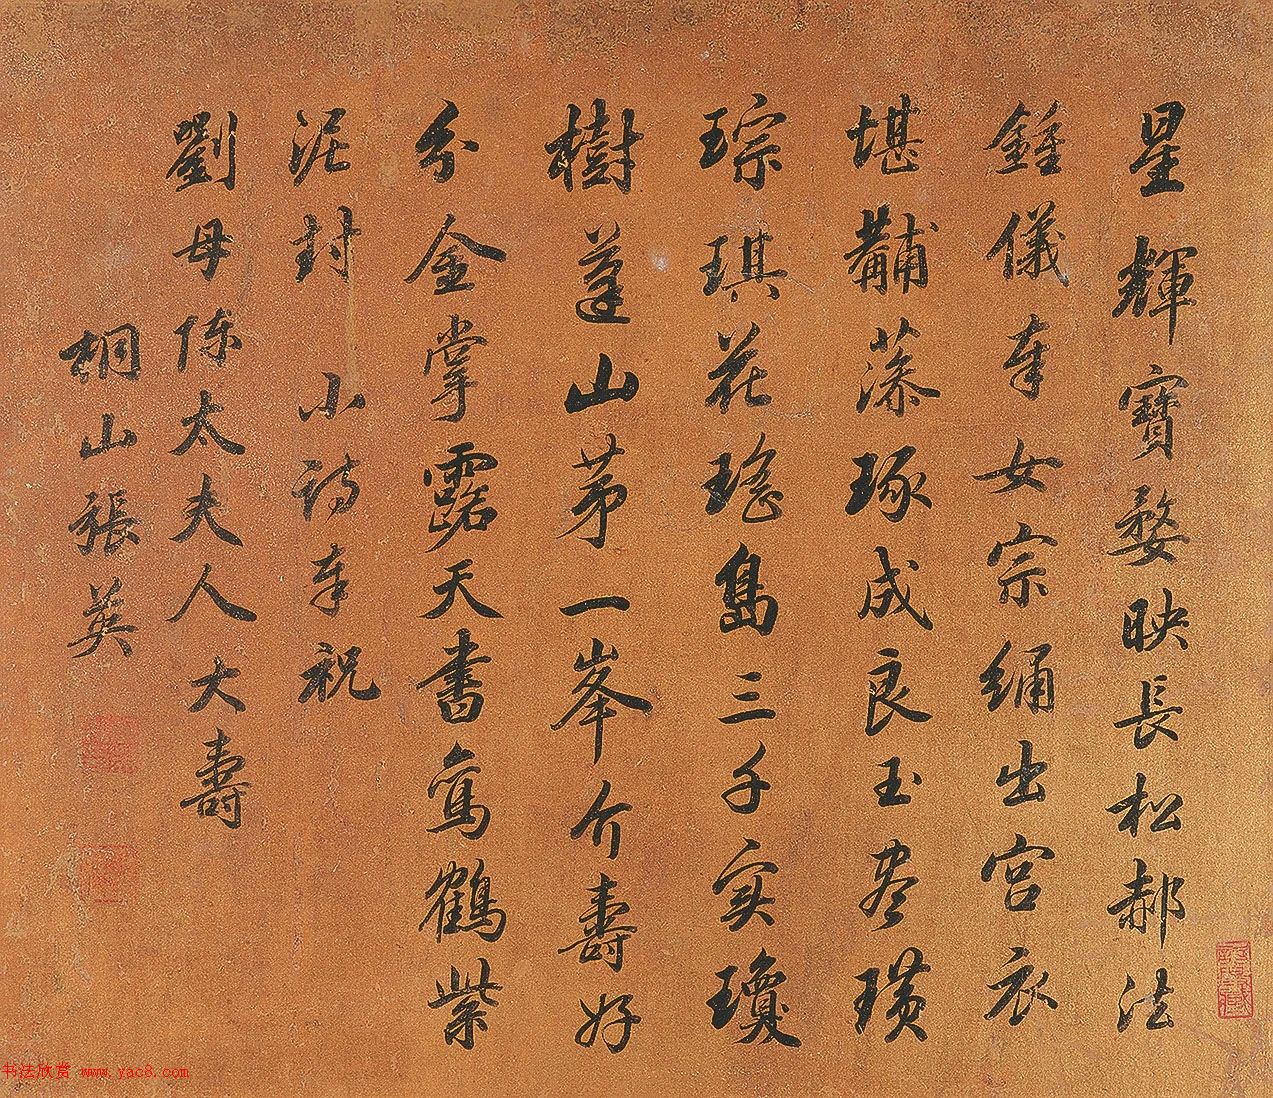 星輝寶婺映長松郝法
鍾儀奉女宗繡出宮衣
堪黼藻琢成良玉盡璜
琮琪花瑤島三千實瓊
樹蓬山苐一峯介壽好
分金掌露天書寫鶴紫
泥封 小詩奉祝
劉母陳太夫人大壽
桐山張英
书法欣赏 www.yac8.com